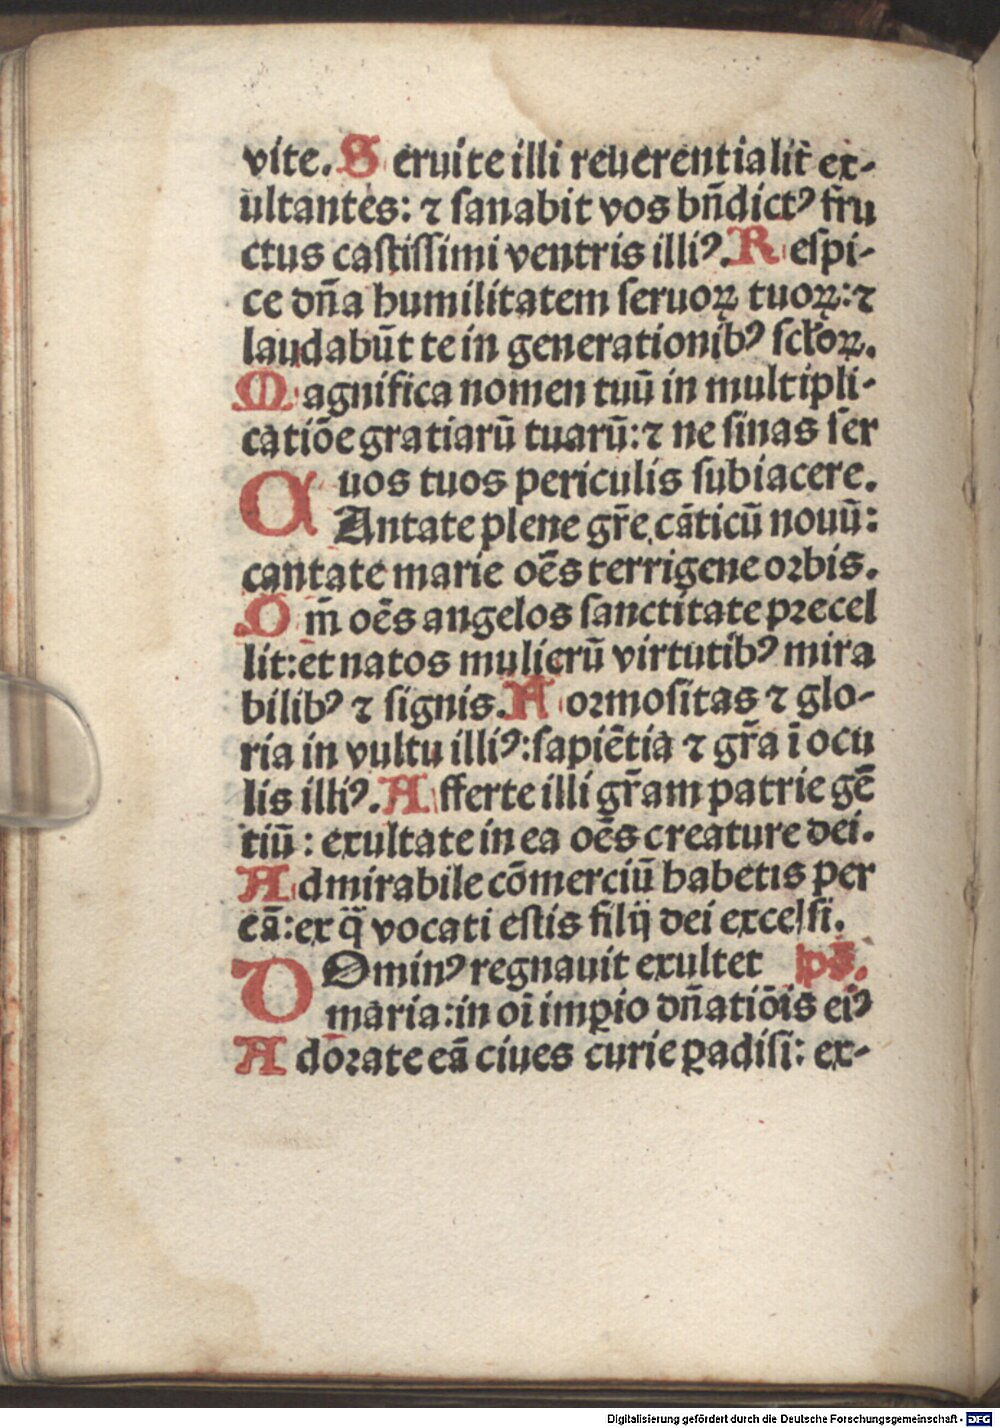 vite. S eruite illi reuerentialit̄ ex-
ultantes: ⁊ ſanabit vos bn̄dictꝰ fru
ctus caſtiſſimi ventris illiꝰ. R eſpi-
ce dn̄a humilitatem ſeruoꝝ tuoꝝ: ⁊
laudabūt te in generationibꝰ ſcl̄oꝝ.
M agnifica nomen tuū in multipli-
catiōe gratiarū tuarū: ⁊ ne ſinas ſer
uos tuos periculis ſubiacere.
C Antate plene gr̄e cāticū nouū:
cantate marie oēs terrigene orbis.
Q m̄ oēs angelos ſanctitate precel
lit: et natos mulierū virtutibꝰ mira
bilibꝰ ⁊ ſignis. F ormoſitas ⁊ glo-
ria in vultu illiꝰ: ſapiētia ⁊ gr̄a ī ocu
lis illiꝰ. A fferte illi gr̄am patrie gē
tiū: exultate in ea oēs creature dei.
A dmirabile cōmerciū habetis per
eā: ex q̄ vocati eſtis filij dei excelſi.
D Ominꝰ regnauit exultet ps̄.
maria: in oī imꝑio dn̄atiōis eiꝰ
A dorate eā ciues curie ꝑadiſi: ex-
Digitalisierung gefördert durch die Deutsche Forschungsgemeinschaft - DFG